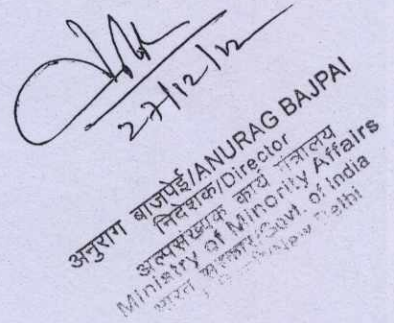 27/12/12
अनुराग बाजपेई/ANURAG BAJPAI
निदेशक/Director
अल्पसंख्यक कार्य मंत्रालय
Ministry of Minority Affairs
भारत सरकार/Govt. of India
Delhi